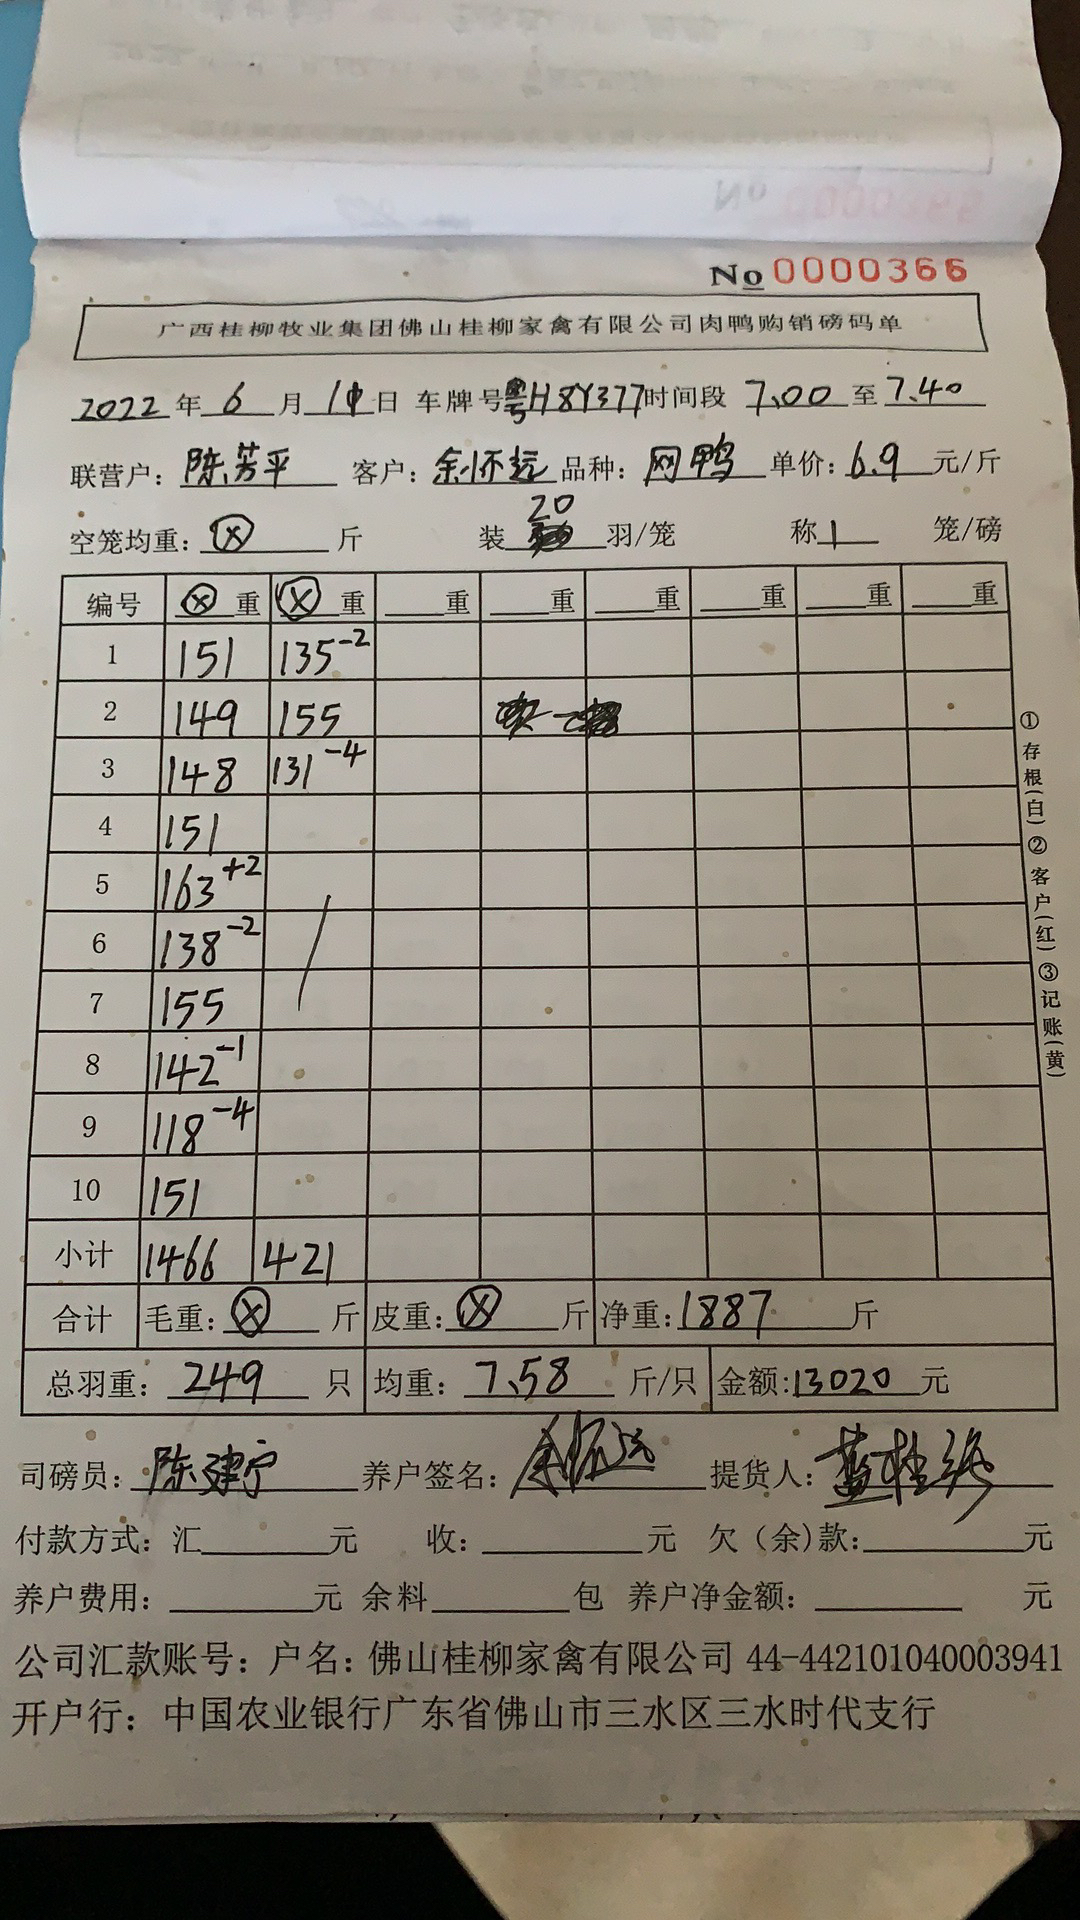 No 0000366
广西桂柳牧业集团佛山桂柳家禽有限公司肉鸭购销磅码单
2022 年 6 月 10 日 车牌号 粤H8Y377 时间段 7.00 至 7.40
联营户：陈芳平 客户：余怀远 品种：网鸭 单价：6.9 元/斤
空笼均重：ⓧ 斤 装 20 羽/笼 称 1 笼/磅
编号 ⓧ重 ⓧ重 重 重 重 重 重 重
1 151 135-2
2 149 155
3 148 131-4
4 151
5 163+2
6 138-2
7 155
8 142-1
9 118-4
10 151
小计 1466 421
合计 毛重：ⓧ 斤 皮重：ⓧ 斤 净重：1887 斤
总羽重：249 只 均重：7.58 斤/只 金额：13020 元
司磅员：陈建宁 养户签名：余怀远 提货人：
付款方式：汇 元 收： 元 欠（余）款： 元
养户费用： 元 余料 包 养户净金额： 元
公司汇款账号：户名：佛山桂柳家禽有限公司 44-442101040003941
开户行：中国农业银行广东省佛山市三水区三水时代支行
①存根（白）②客户（红）③记账（黄）